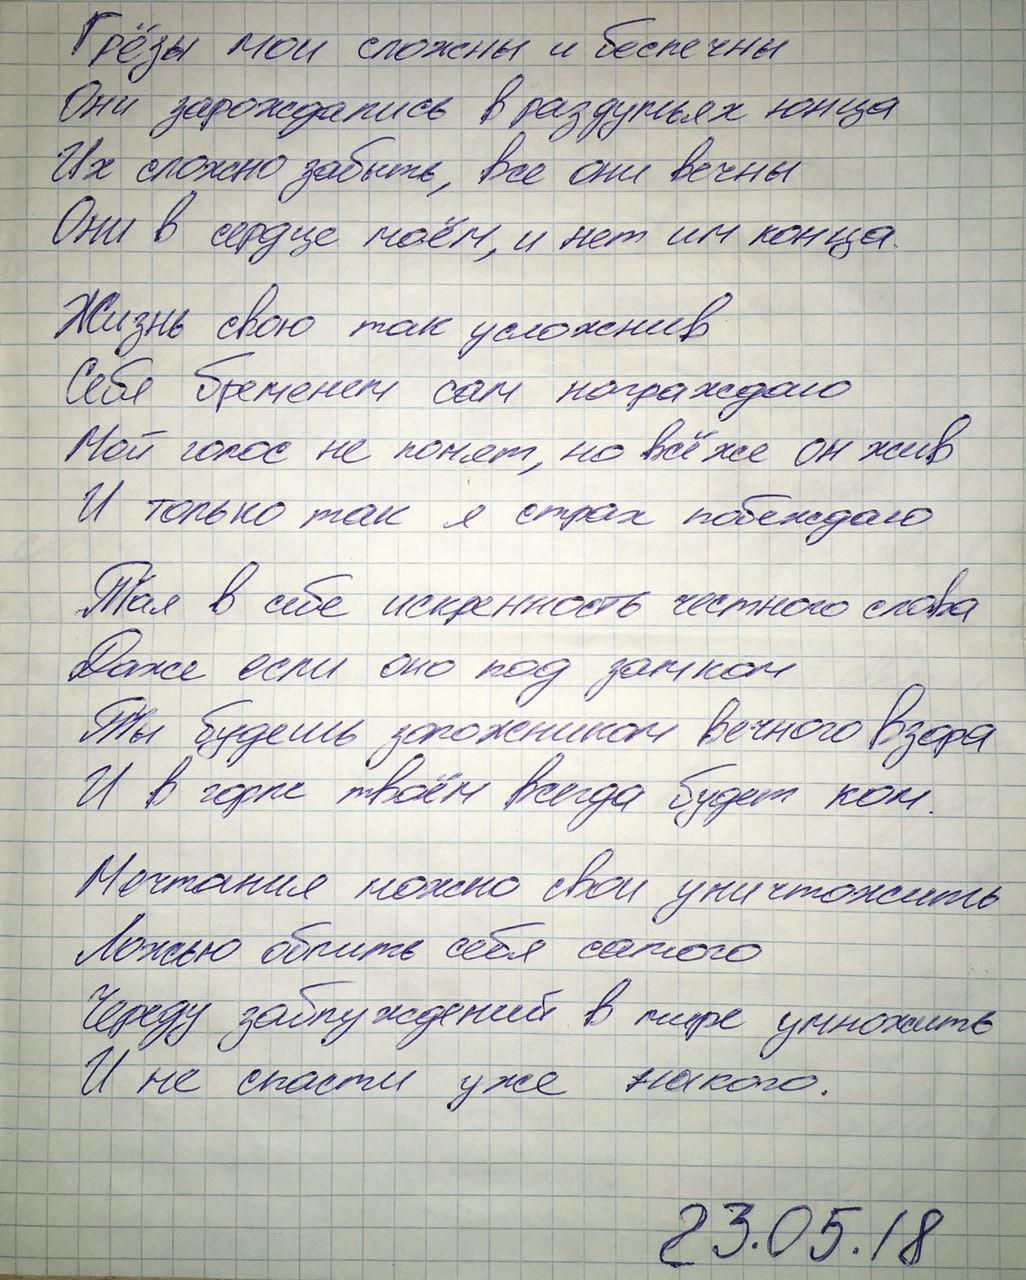 Грёзы мои сложны и беспечны
Они зарождались в раздумьях юнца
Их сложно забыть, все они вечны
Они в сердце моём, и нет им конца.
Жизнь свою так усложнив
Себя бременем сам награждаю
Мой голос не понят, но всё же он жив
И только так я страх побеждаю
Тая в себе искренность честного слова
Даже если оно под замком
Ты будешь заложником вечного взора
И в горле твоём всегда будет ком.
Мечтания можно свои уничтожить
Ложью облить себя самого
Череду заблуждений в мире умножить
И не спасти уже никого.
23.05.18